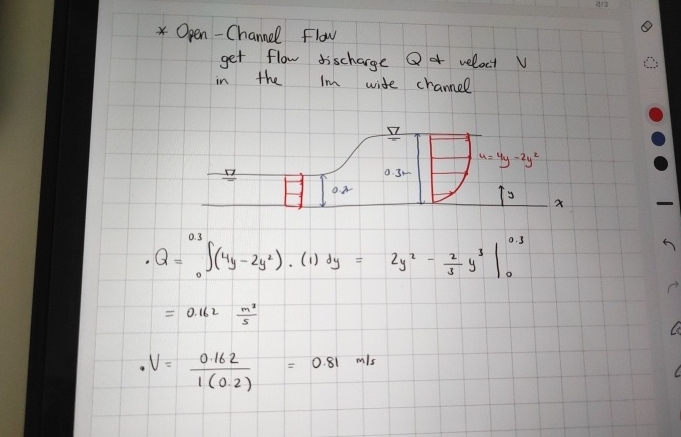 2/3
* Open-Channel Flow
get flow discharge Q & velocit V
in the 1m wide channel
u = 4y - 2y²
0.3m
0.2
y
x
. Q = ₀∫^0.3 (4y - 2y²) . (1) dy = 2y² - 2/3 y³ |₀^0.3
= 0.162 m³/s
. V = 0.162 / 1(0.2) = 0.81 m/s